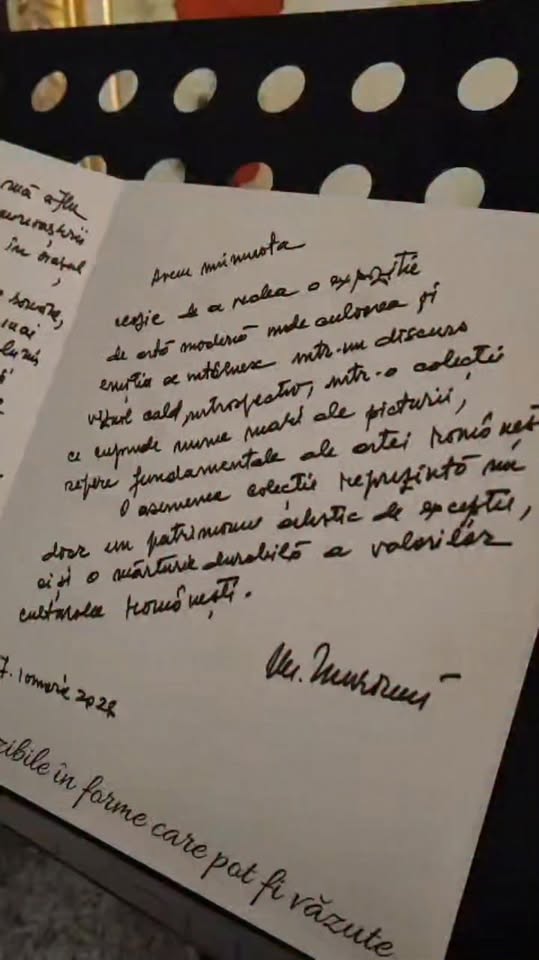 nuă aflu
în orașul
Avem minunata
ocazie de a vedea o expoziție
de artă modernă unde culoarea și
emoția se întâlnesc într-un discurs
vizual cald, introspectiv, într-o colecție
ce cuprinde nume mari ale picturii,
repere fundamentale ale artei românești
O asemenea colecție reprezintă nu
doar un patrimoniu artistic de excepție,
ci și o mărturie durabilă a valorilor
culturale românești.
7. Ianuarie
zibile în forme care pot fi văzute